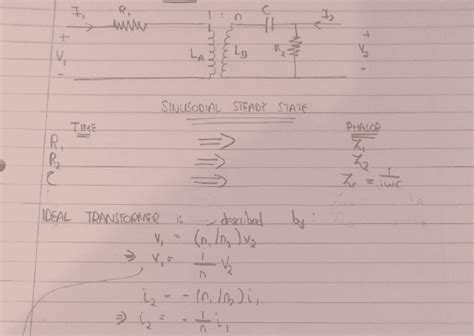 I₁ R₁ 1 : n C I₂
+ + 
V₁ L_A L_B R₂ V₂
- -
SINUSODIAL STEADY STATE
TIME PHASOR
R₁ ⇒ Z₁
R₂ ⇒ Z₂
C ⇒ Z_c = 1/iωc
IDEAL TRANSFORMER is described by:
V₁ = (n₁/n₂) V₂
⇒ V₁ = 1/n V₂
i₂ = -(n₁/n₂) i₁
⇒ i₂ = - 1/n i₁